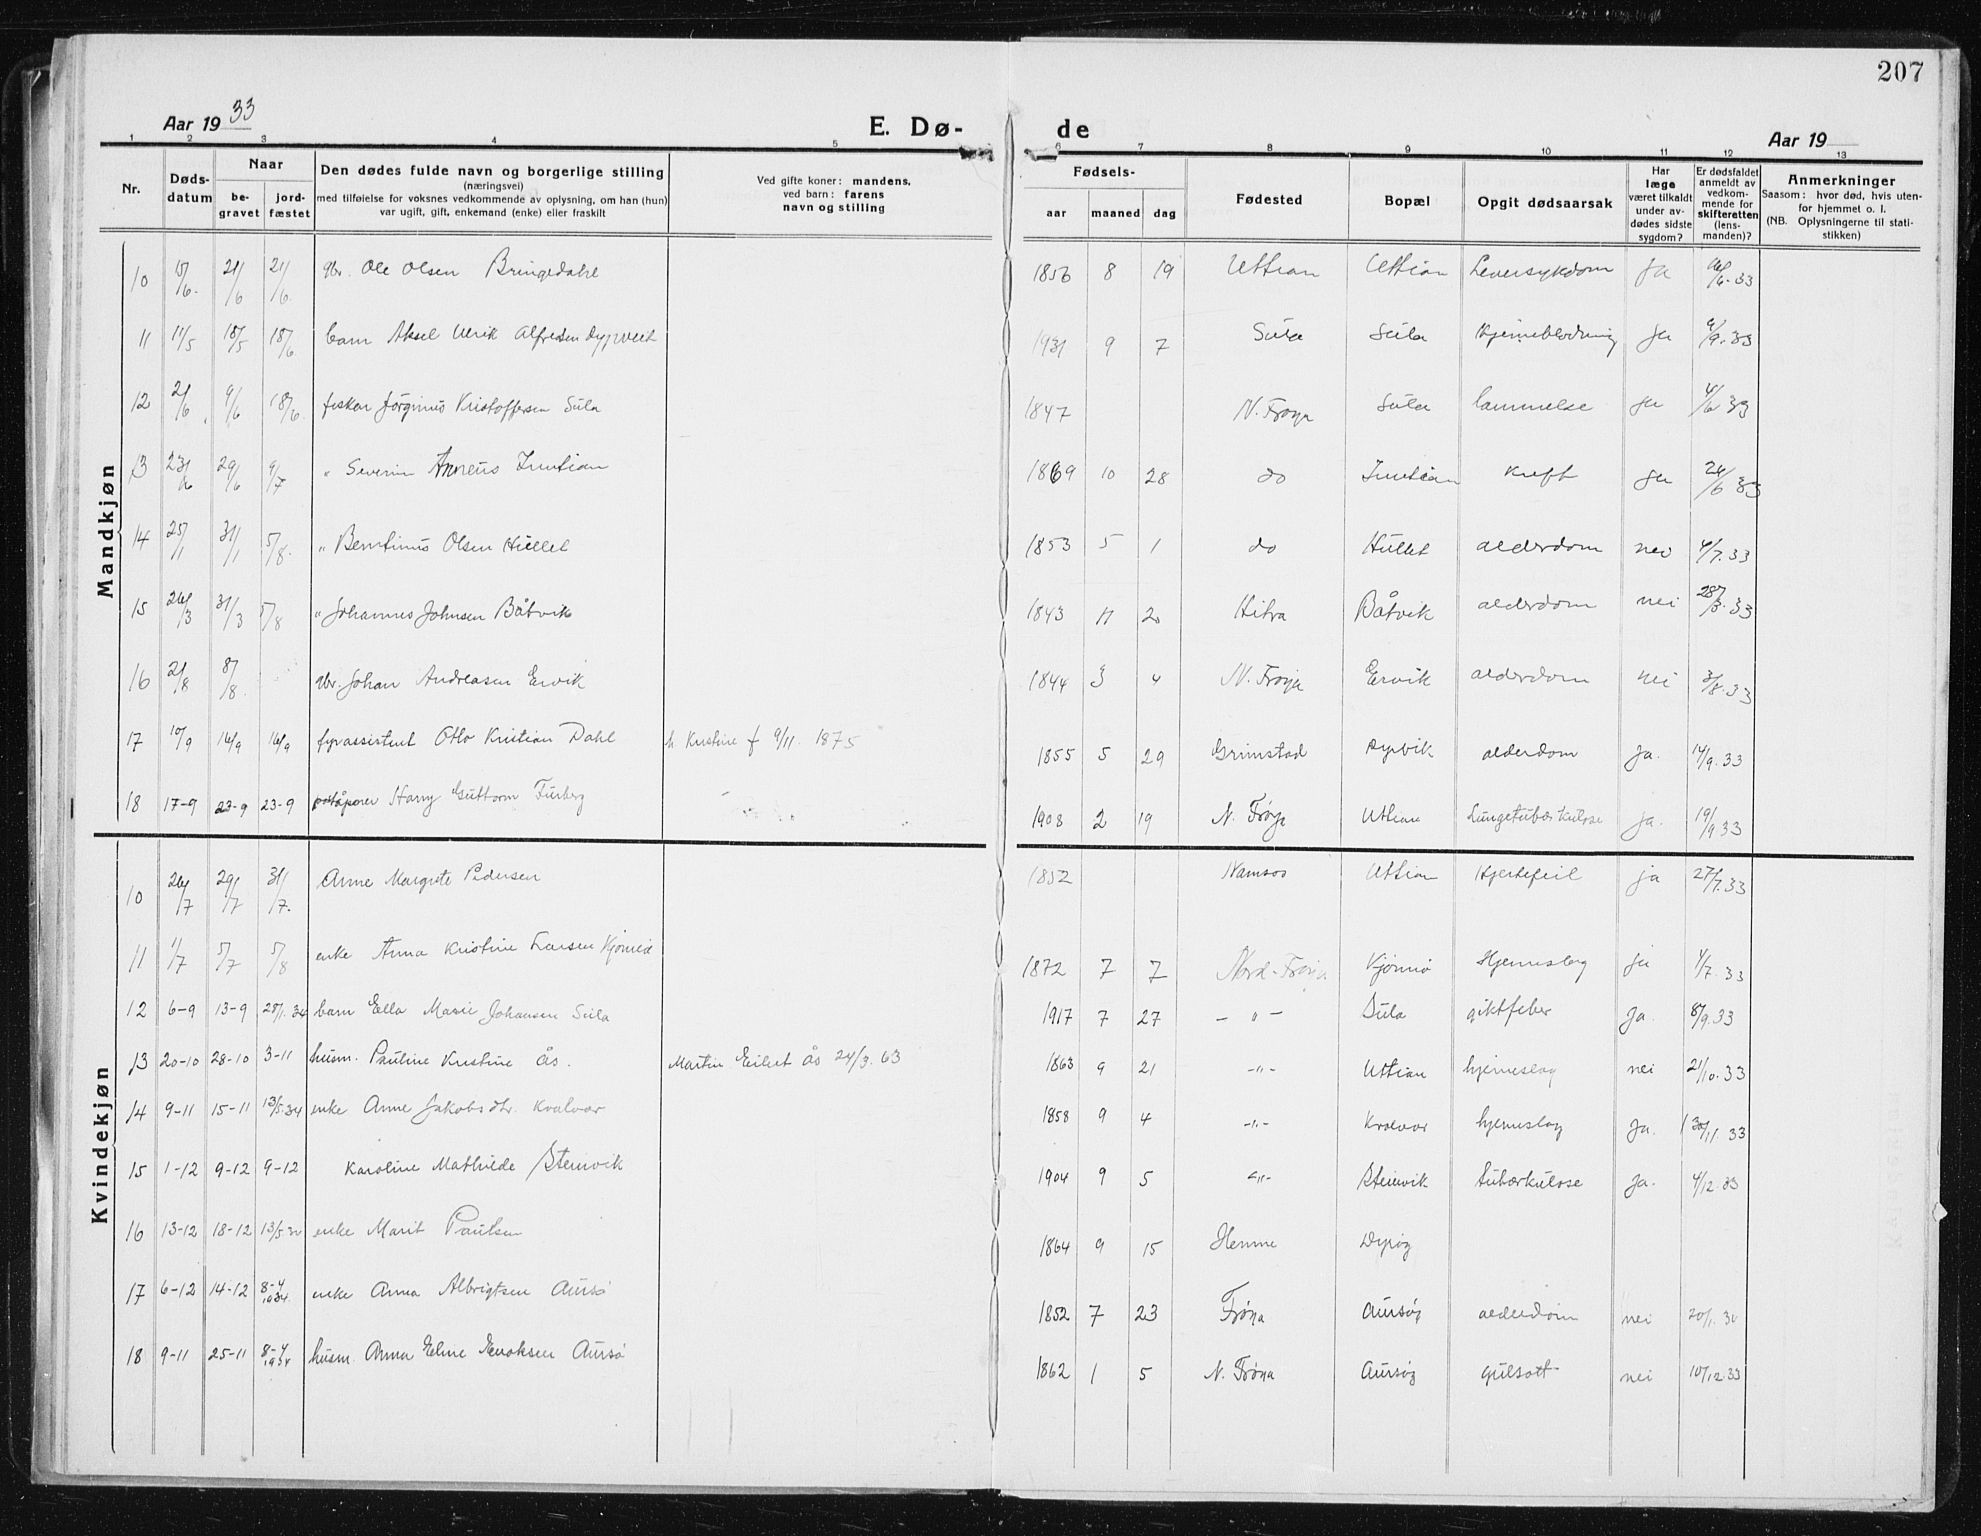 207
Aar 1933
E. Dø-
de
Aar 19
1 2 3 4 5 6 7 8 9 10 11 12 13
Nr.
Døds-
datum
Naar
be-
gravet
jord-
fæstet
Den dødes fulde navn og borgerlige stilling
(næringsvei)
med tilføielse for voksnes vedkommende av oplysning, om han (hun)
var ugift, gift, enkemand (enke) eller fraskilt
Ved gifte koner: mandens,
ved barn: farens
navn og stilling
Fødsels-
aar maaned dag
Fødested
Bopæl
Opgit dødsaarsak
Har
læge
været tilkaldt
under av-
dødes sidste
sygdom?
Er dødsfaldet
anmeldt av
vedkom-
mende for
skifteretten
(lens-
manden)?
Anmerkninger
Saasom: hvor død, hvis uten-
for hjemmet o. l.
(NB. Oplysningerne til stati-
stikken)
Mandkjøn
10 15/6. 21/6 21/6. gbr. Ole Olsen Bringedahl 1856 8 19 Uttian Uttian Leversykdom ja
11 11/5 18/5 18/6 barn Aksel Ulrik Alfredsen Dyrvik 1931 9 7 Sula Sula Hjerneblødning ja 9/9.33
12 2/6 9/6 18/6. fisker Jörginus Kristoffersen Sula 1847 N. Frøya Sula lammelse ja 4/6 33
13 23/6 29/6 9/7 " Severin Anneus Inntian 1869 10 28 do Inntian kreft ja 26/6 33
14 25/1 31/1 5/8. " Berntinus Olsen Hullet 1853 5 1 do Hullet alderdom nei 4/7.33
15 26/3 31/3 5/8 " Johannes Johnsen Båtvik 1843 11 20 Hitra Båtvik alderdom nei 28/3.33
16 2/8 8/8. gbr. Johan Andreasen Ervik 1844 3 4 N. Frøya Ervik alderdom nei 3/8.33
17 10/9 16/9 16/9 fyrassistent Otto Kristian Dahl h. Kristine f 9/11. 1875 1855 5 29 Grimstad Dyrvik alderdom ja. 14/9.33
18 17-9 23-9 23-9 Harry Guttorm Furberg 1908 2 19 N. Frøya Uttian Lungetuberkulose ja. 19/9 33
Kvindekjøn
10 26/7 29/7 31/7. Anne Margrete Pedersen 1852 Namsos Uttian Hjertefeil ja 27/7.33
11 1/7 5/7 5/8 enke Anna Kristine Larsen Kjönnö 1872 7 7 Nord-Frøya Kjönnö Hjerneslag ja 4/7.33
12 6-9 13-9 28/1.34 barn Ella Marie Johansen Sula 1917 7 27 -"- Sula giktfeber ja. 8/9.33
13 20-10 28-10 3-11 husm. Pauline Kristine Ås. Martin Eilert Ås 24/3.63 1863 9 21 -"- Uttian hjerneslag nei 21/10.33
14 9-11 15-11 13/5.34 enke Anne Jakobsdtr. Kvalvær 1858 9 4 -"- Kvalvær hjerneslag ja. 30/11.33
15 1-12 9-12 9-12 Karoline Mathilde Stensvik 1904 9 5 -"- Stensvik tuberkulose ja. 4/12.33
16 13-12 18-12 enke Marit Paulsen 1864 9 15 Hemne Dyrøy
17 6-12 14-12 8-4 1934. enke Anna Albrigtsen Aursö 1852 7 23 Frøya Aursøy alderdom nei
18 9-11 25-11 8-4 1934 husm. Anna Eline Enoksen Aursö 1862 1 5 N. Frøya Aursøy gulsott nei 10/12.33